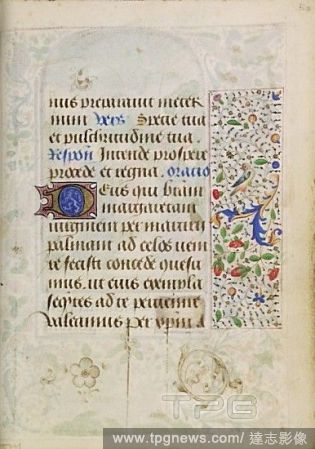 nus preparauit in eter
num Vers Specie tua
et pulchritudine tua.
Respon Intende prospere
procede et regna. oracio
Deus qui
margaretam
uirginem per martirii
palmam ad celos ueni
re fecisti concede quesu
mus. ut eius exempla
ad te peruenire
valeamus per xpm
TPG
www.tpgnews.com/ 達志影像